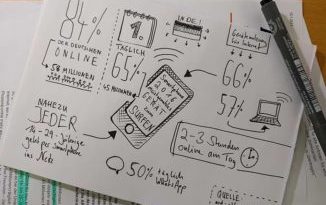 84%
DER DEUTSCHEN
ONLINE
58 MILLIONEN
1.
IN DE!
TÄGLICH
65%
45 MILLIONEN
Smartphone
2016
GERÄT
zum
SURFEN
66%
57%
2-3 Stunden
online am Tag
NAHEZU
JEDER
14-29-jährige
geht per Smartphone
ins Netz
50% täglich
WhatsApp
QUELLE